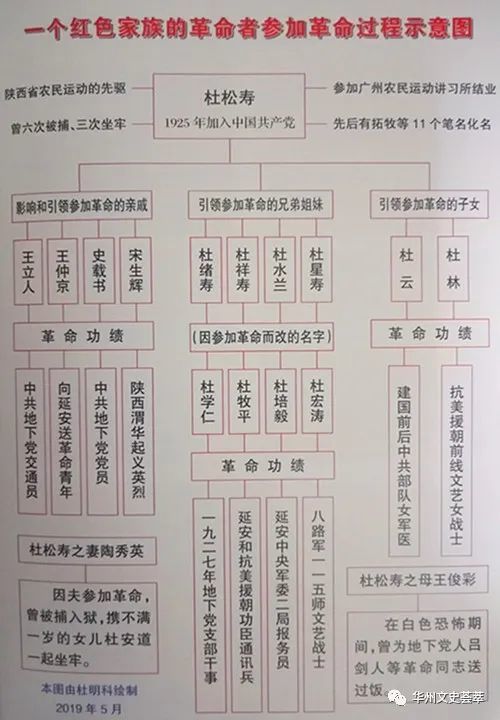 一个红色家族的革命者参加革命过程示意图
陕西省农民运动的先驱
曾六次被捕、三次坐牢
杜松寿
1925年加入中国共产党
参加广州农民运动讲习所结业
先后有拓牧等11个笔名化名
影响和引领参加革命的亲戚
王立人
王仲京
史载书
宋生辉
革命功绩
中共地下党交通员
向延安送革命青年
中共地下党党员
陕西渭华起义英烈
引领参加革命的兄弟姐妹
杜绪寿
杜祥寿
杜水兰
杜星寿
(因参加革命而改的名字)
杜学仁
杜牧平
杜培毅
杜宏涛
革命功绩
一九二七年地下党支部干事
延安和抗美援朝功臣通讯兵
延安中央军委二局报务员
八路军一一五师文艺战士
引领参加革命的子女
杜云
杜林
革命功绩
建国前后中共部队女军医
抗美援朝前线文艺女战士
杜松寿之妻陶秀英
因夫参加革命,
曾被捕入狱,携不满
一岁的女儿杜安道
一起坐牢。
杜松寿之母王俊彩
在白色恐怖期
间,曾为地下党人吕
剑人等革命同志送
过饭。
本图由杜明科绘制
2019年5月
华州文史荟萃